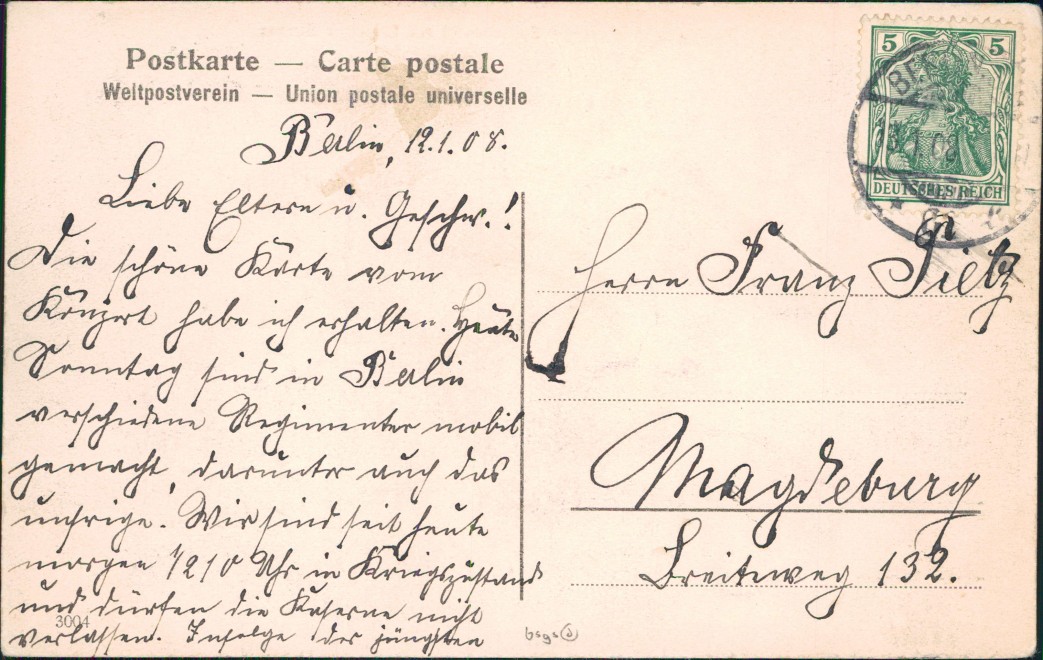 Postkarte — Carte postale
Weltpostverein — Union postale universelle
Berlin, 12.1.08.
Liebe Eltern u. Geschw.!
Die schöne Karte vom
Konzert habe ich erhalten. Heute
Sonntag sind in Berlin
verschiedene Regimenter mobil
gemacht, darunter auch das
unsrige. Wir sind seit heute
morgen 1/2 10 Uhr in Kriegszustand
und dürfen die Kaserne nicht
verlassen. Infolge der jüngsten
3004
5 5
DEUTSCHES REICH
Herrn Franz
Magdeburg
Breiteweg 132.